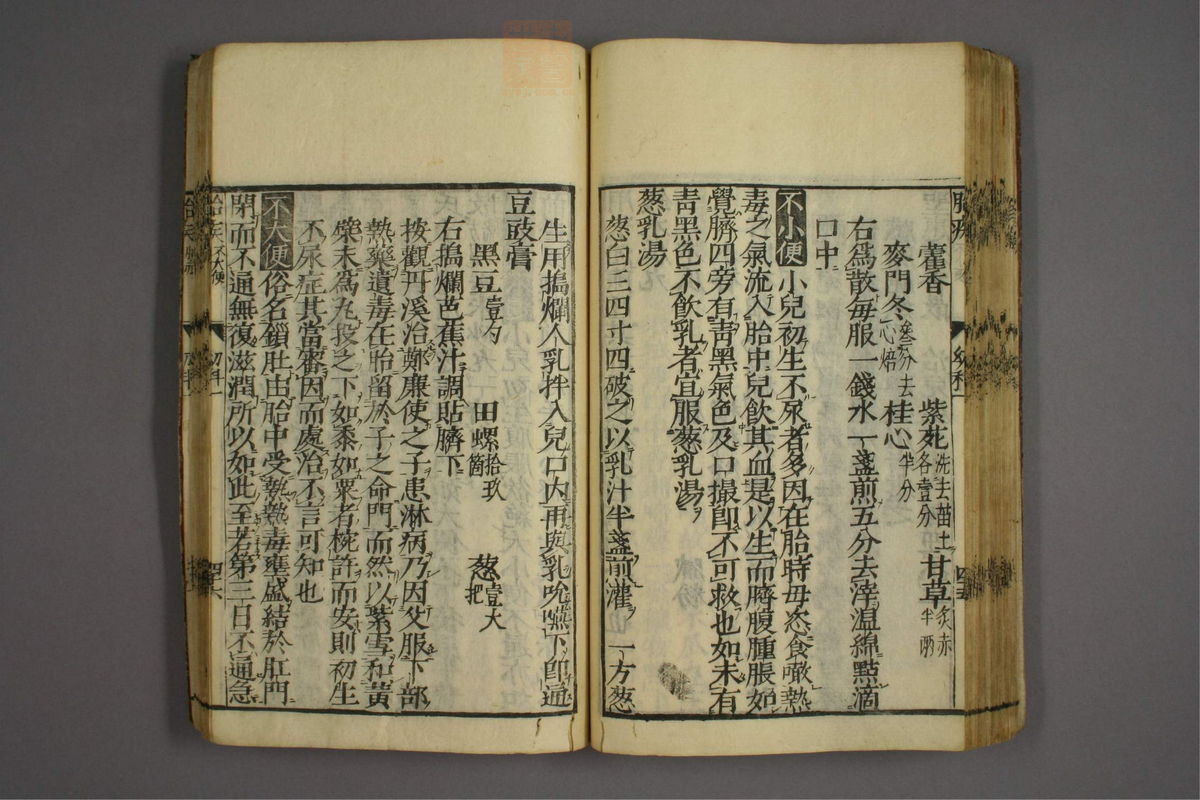 藿香 紫死各壹分 洗去苗土 甘草半両 炙赤
麥門冬參分去心焙 桂心半分
右爲散每服一錢水一盞煎五分去滓温綿點滴
口中
不小便 小兒初生不尿者多因在胎時母恣食噉熱
毒之氣流入胎中兒飲其血是以生而臍腹腫脹如
覺臍四旁有靑黑氣色及口撮即不可救也如未有
靑黑色不飲乳者宜服葱乳湯
葱乳湯
葱白三四寸四破之以乳汁半盞煎灌 一方葱
生用搗爛人乳拌入兒口内再與乳吮嚥下卽通
豆豉膏
黑豆壹勺 田螺拾玖箇 葱壹大把
右搗爛芭蕉汁調貼臍下
按觀丹溪治鄭廉使之子患淋病乃因父服下部
熱藥遺毒在胎留於子之命門而然以紫雪和黃
檗末爲丸投之下如黍如粟者椀許而安則初生
不尿症其當審因而處治不言可知也
不大便 俗名鎖肚由胎中受熱熱毒壅盛結於肛門
閉而不通無復滋潤所以如此至若第三日不通急